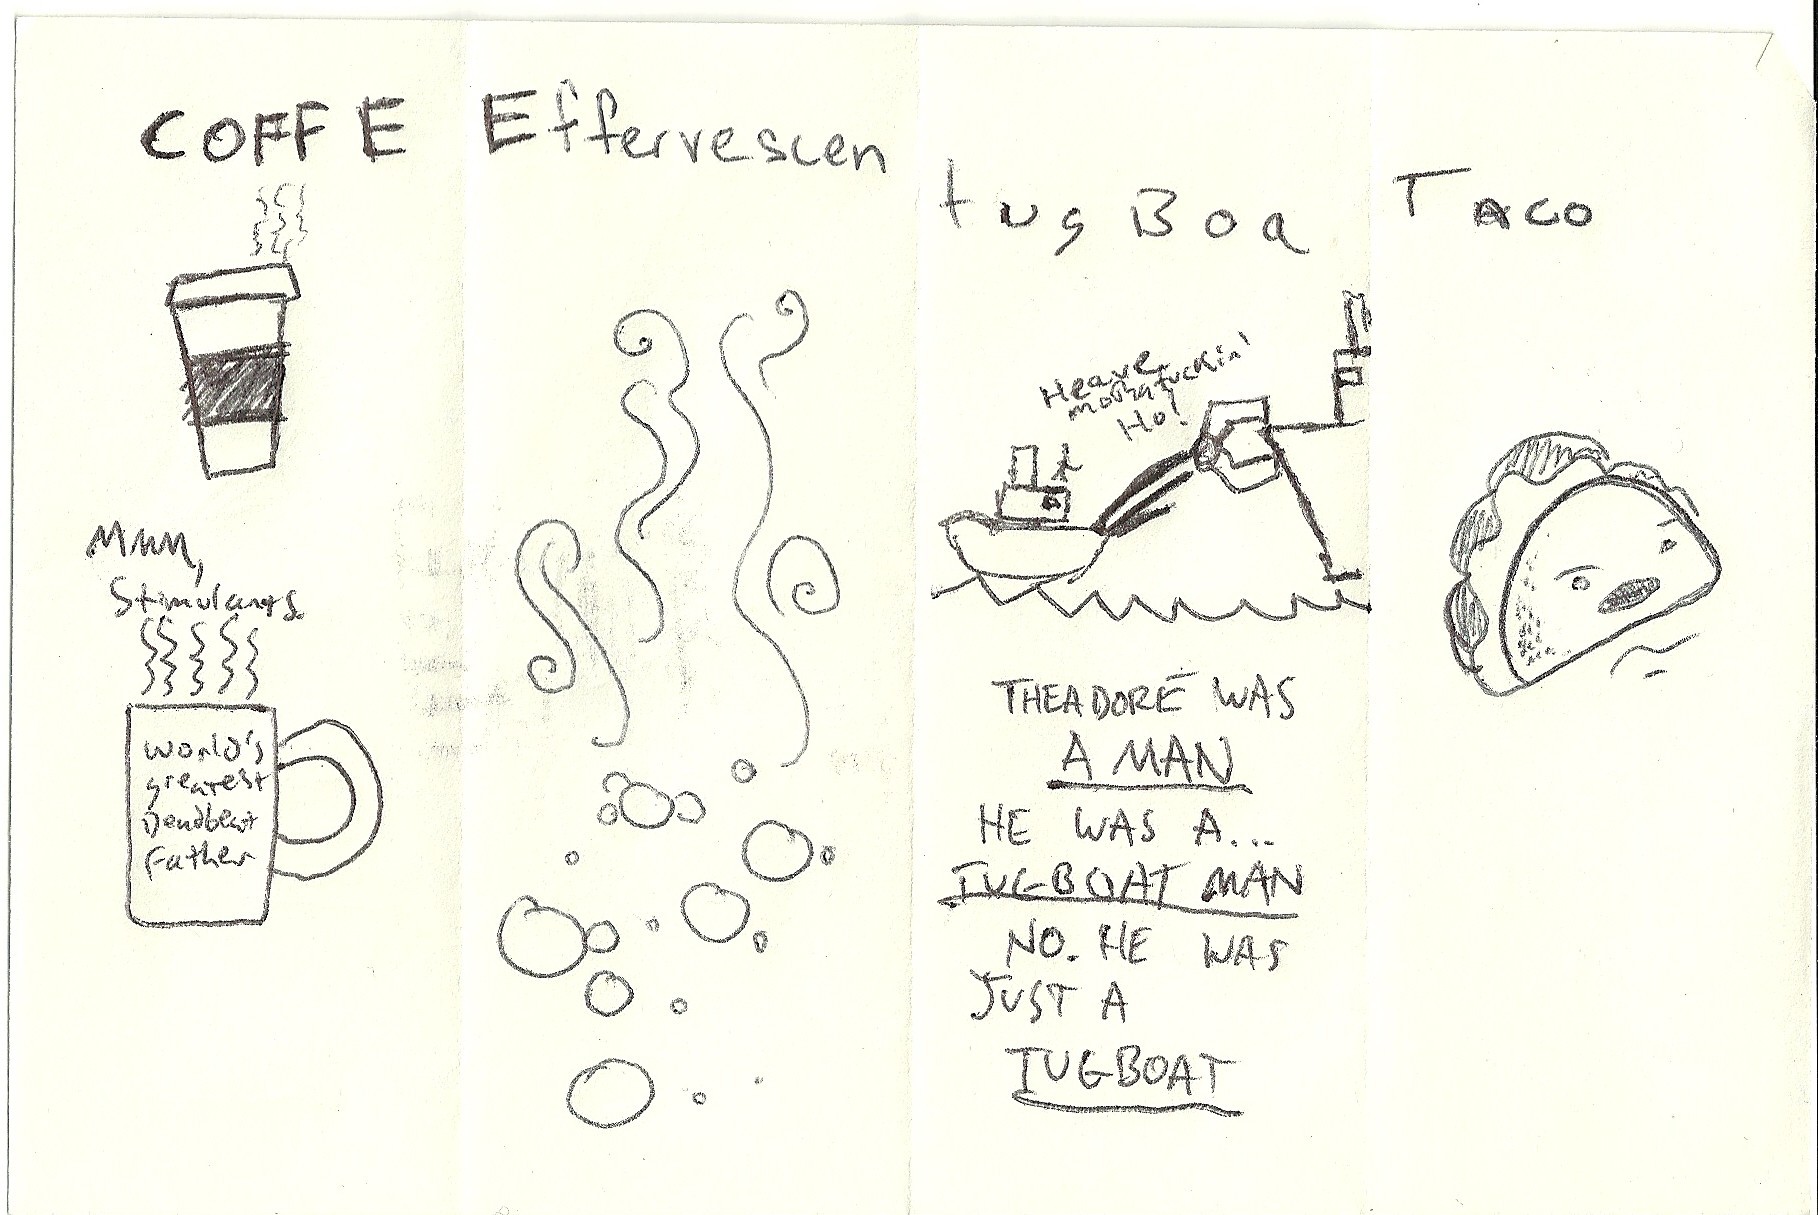 COFFE
Effervescen
tugBoa
TACO
Mmm,
Stimulants
World's
greatest
Deadbeat
Father
Heave
mothafuckin'
Ho!
THEADORE WAS
A MAN
HE WAS A...
TUGBOAT MAN
NO. HE WAS
JUST A
TUGBOAT